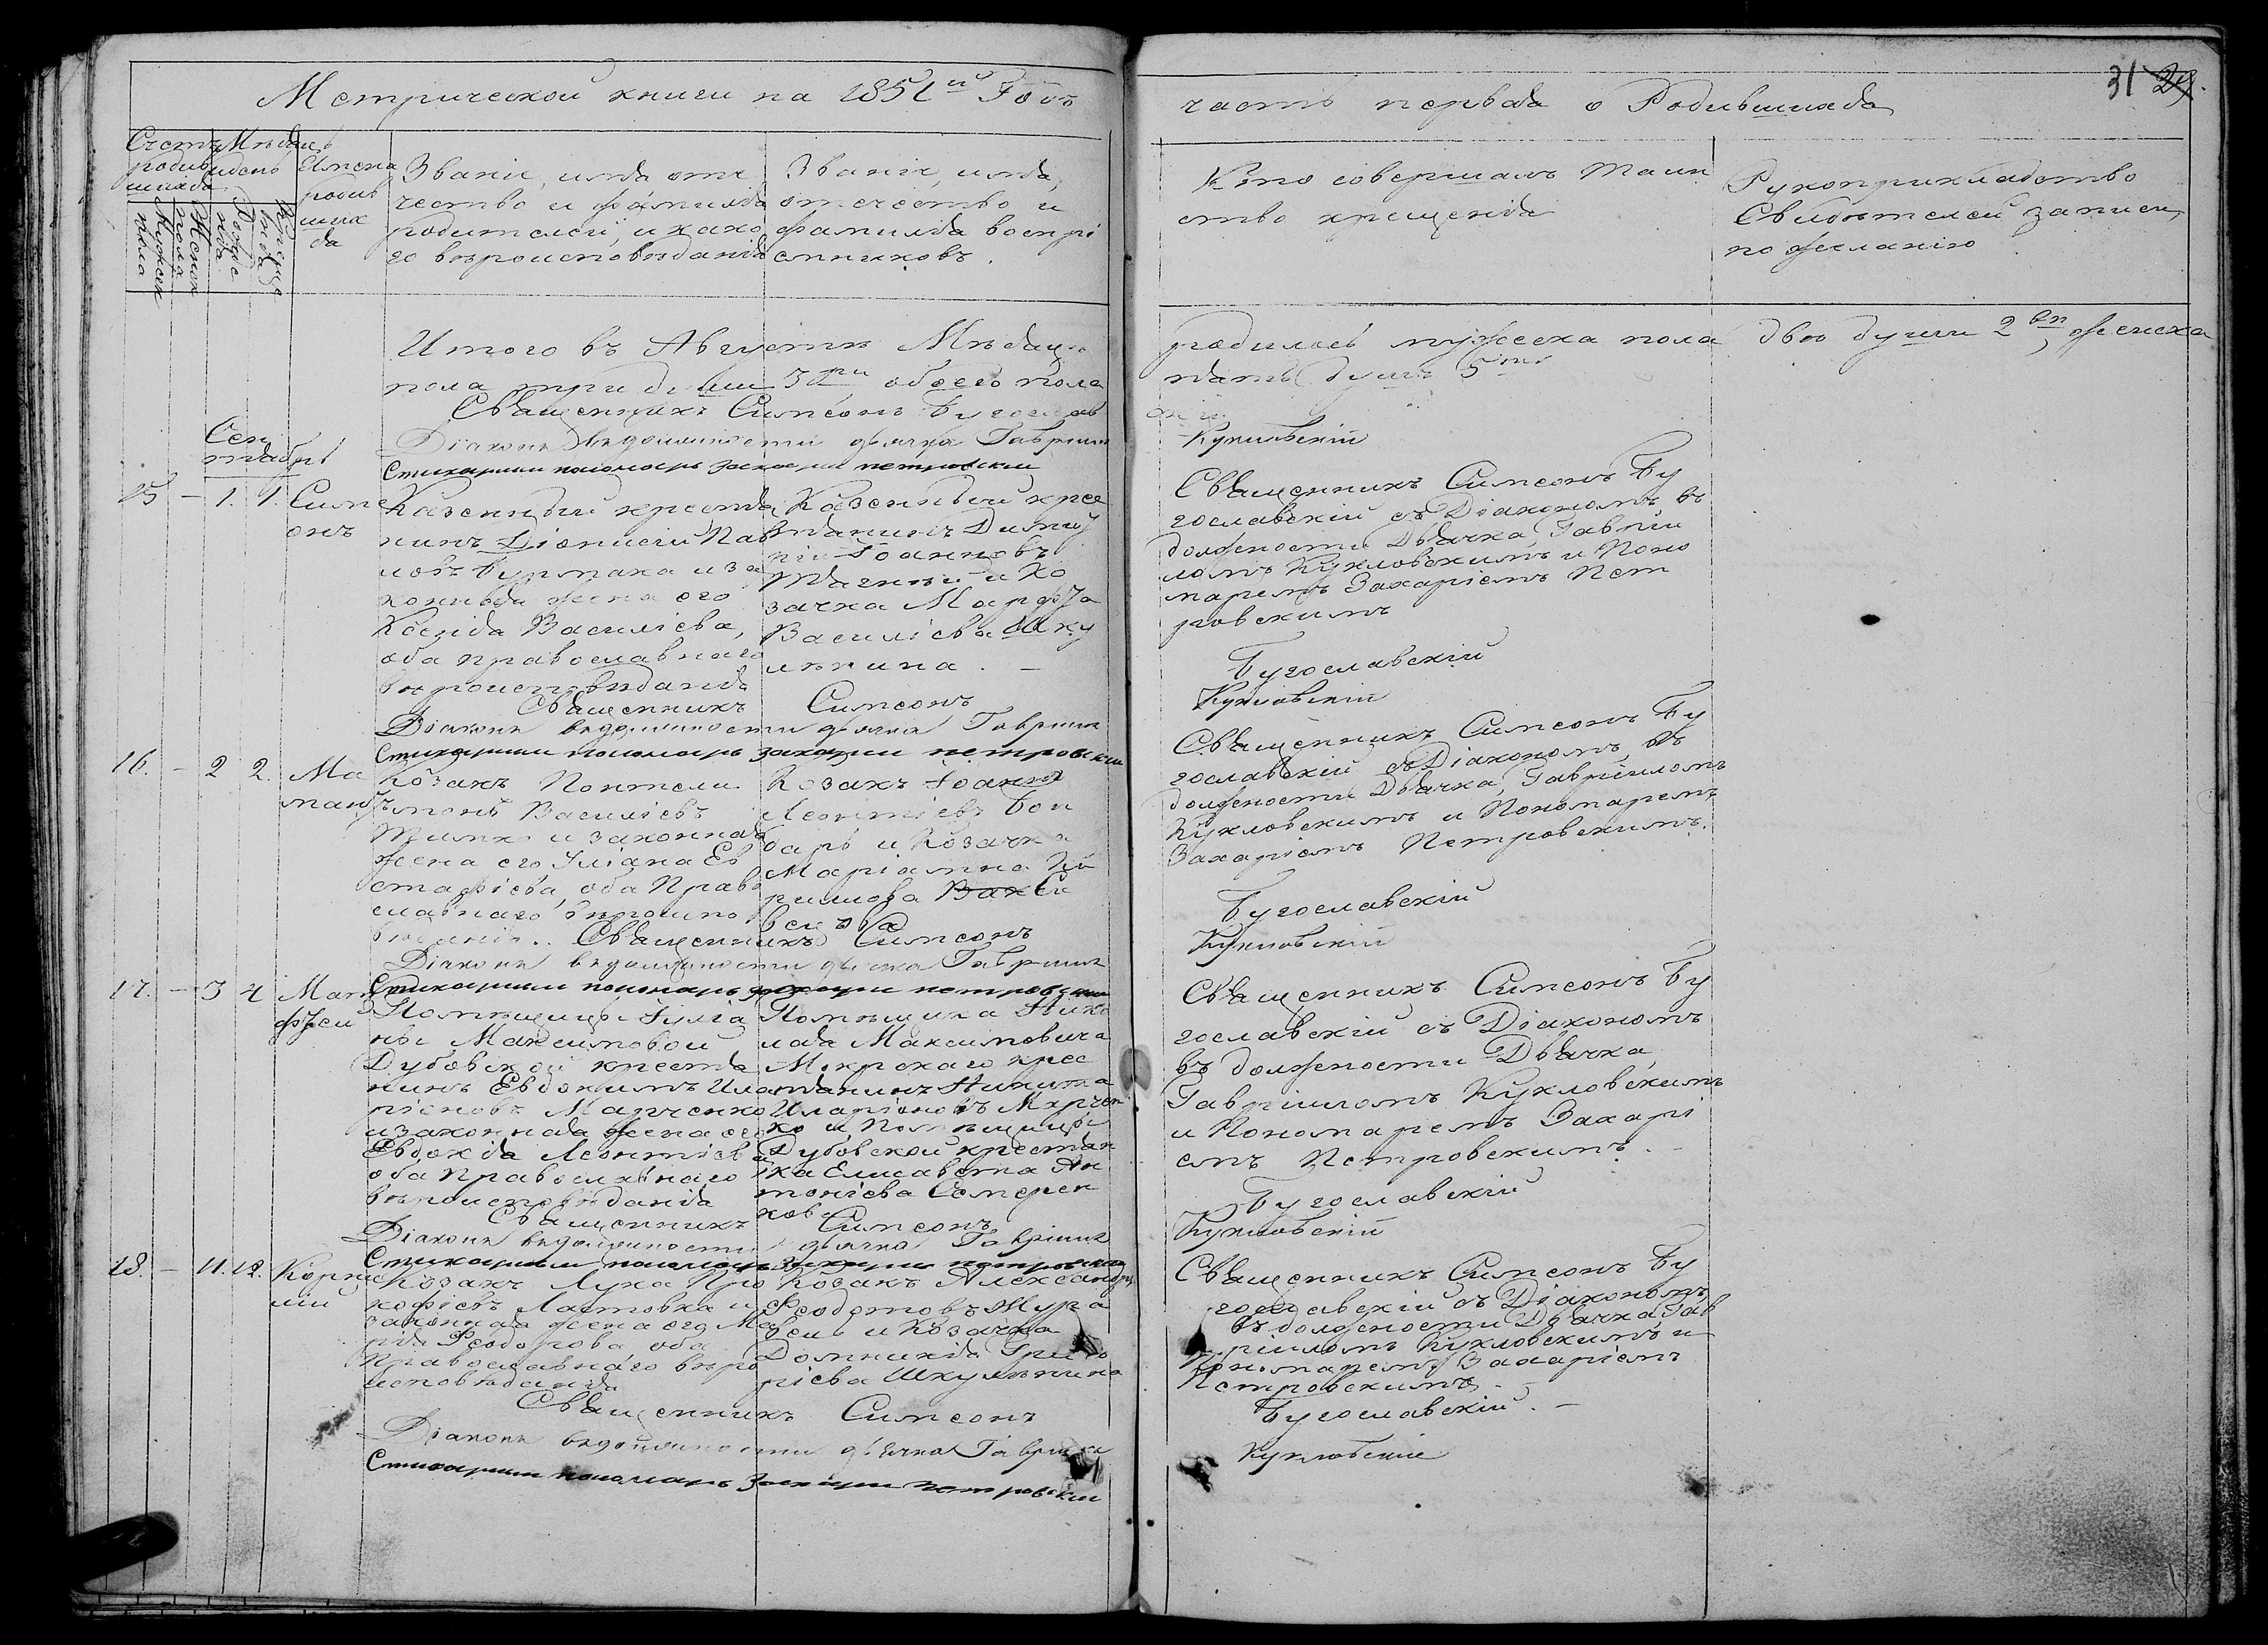 Метрической книги на 1851й Годъ
часть перьвая о Родившихся
31 29.
Счетъ родив шихся
Мужеск пола
Женск пола
Мѣсяцъ и день
Рожде нія
Креще нія
Имена родив ших ся
Званіе, имя отче
чество и фамилія
родителей, и како
го вѣроисповѣданія
Званіе, имя,
отечество и
фамилія воспрі
емниковъ.
Кто совершалъ Таин
ство крещенія
Рукоприкладство
Свидѣтелей записи,
по желанію
Итого въ Августѣ Мѣсяцѣ
родилось мужеска пола двѣ души 2 женска
пола три души 3ри обоего пола
пять душъ 5ть
Священникъ Симеонъ Бугославскій
Діаконъ въ должности дьячка Гавріилъ
Кукловскій
Стихарный пономарь Захарій Петровскій
Сен
тябрь
15 – 1. 1. Симе
онъ
Казенный крестья
нинъ Діонисій Пав
ловъ Бурлака и за
конная жена его
Ксенія Василіева,
оба православнаго
вѣроисповѣданія
Казенный крес
тьянинъ Димит
рій Іоанновъ
и Ко
зачка Марфа
Василіева Шку
. –
Священникъ Симеонъ Бу
гославскій съ Діакономъ въ
должности Дьячка, Гаврiи
ломъ Кукловскимъ и Поно
маремъ Захаріемъ Пет
ровскимъ
Священникъ Симеонъ
Бугославскій
Діаконъ въ должности дьячка Гавріилъ
Кукловскій
Стихарный пономарь Захарій Петровскій
16. – 2 2. Ма
Козакъ Понтели
монъ Василіевъ
и законная
жена его Іуліана Ев
стафіева, оба Право
славнаго вѣроиспо
вѣданія..
Козакъ Іоаннъ
Леонтіевъ Бон
дарь и Козачка
Маріамна Ки
рилова
Священникъ Симеонъ Бу
гославскій съ Діакономъ, въ
должности Дьячка, Гавріиломъ
Кукловскимъ и Пономаремъ
Захаріемъ Петровскимъ.
Священникъ Симеонъ
Бугославскій
Діаконъ въ должности дьячка Гавріилъ
Кукловскій
Стихарный пономарь Захарій Петровскій
17. – 3 4 Мат
фей
Помѣщицы Іуліа
ны Максимовой
Дубовской крестья
нинъ Евдокимъ Ила
ріоновъ Марченко
и законная жена его
Евдокія Леонтіева
оба Православнаго
вѣроисповѣданія
Помѣщика Нико
лая Максимовича
Мокрскаго крес
тьянинъ Никита
Иларіоновъ Марчен
ко и Помѣщицы
Дубовской крестьян
ка Елисавета Ан
тоніева Семерен
кова
Священникъ Симеонъ Бу
гославскій съ Діакономъ
въ должности Дьячка,
Гавріиломъ Кукловскимъ
и Пономаремъ Захарі
емъ Петровскимъ. –
Священникъ Симеонъ
Бугославскій
Діаконъ въ должности дьячка Гавріилъ
Кукловскій
Стихарный пономарь Захарій Петровскій
18. – 11. 12. Корни
лій
Козакъ Лука Про
кофіевъ Ластовка и
законная жена его Ма
рія Феодорова оба
Православнаго вѣро
исповѣданія
Козакъ Александръ
Феодотовъ Жура
вель и Козачка
Домникія Григо
ріева
Священникъ Симеонъ Бу
гославскій съ Діакономъ,
въ должности Дьячка Гав
ріиломъ Кукловскимъ и
Пономаремъ Захаріемъ
Петровскимъ. –
Священникъ Симеонъ
Бугославскій. –
Діаконъ въ должности дьячка Гавріилъ
Кукловскій
Стихарный пономарь Захарій Петровскій